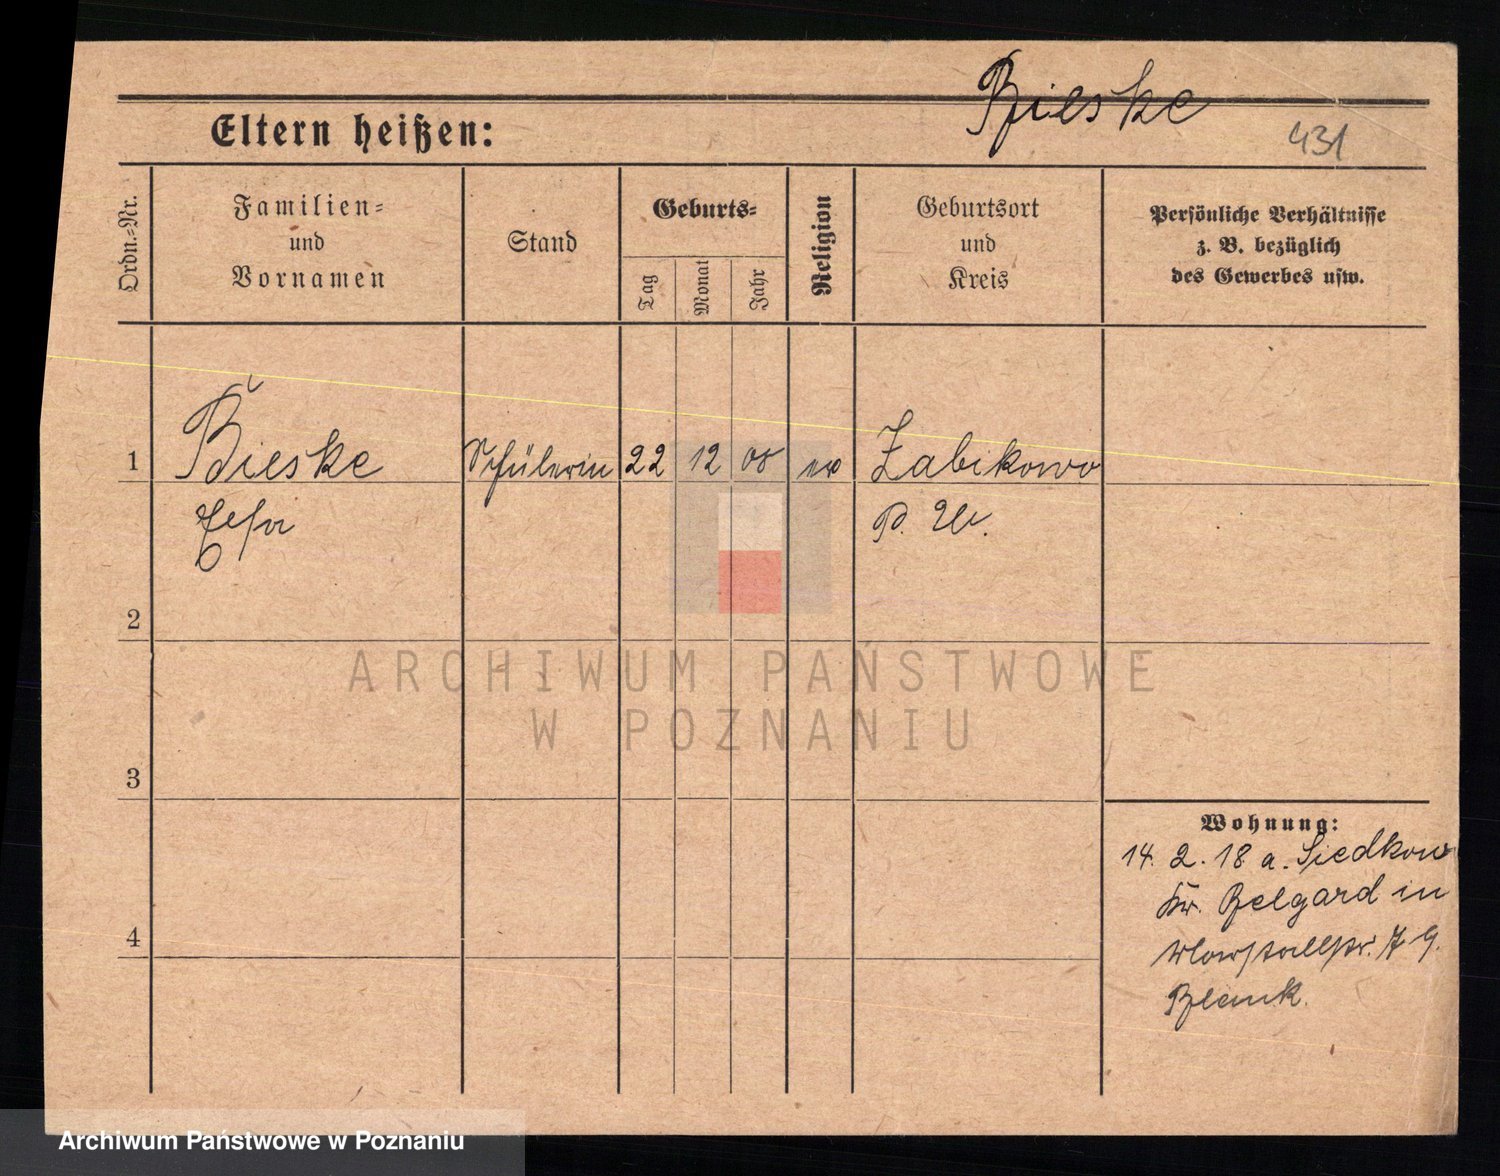 Bieske
431
Eltern heißen:
Ordn.-Nr.
Familien-
und
Vornamen
Stand
Geburts-
Tag
Monat
Jahr
Religion
Geburtsort
und
Kreis
Persönliche Verhältnisse
z. B. bezüglich
des Gewerbes usw.
1
Bieske
Schülerin
22
12
ev
Zabikowo
P. W.
2
3
4
Wohnung:
14. 2. 18 a. Siedkow
Kr. Belgard in
7
Blank.
ARCHIWUM PAŃSTWOWE
W POZNANIU
Archiwum Państwowe w Poznaniu